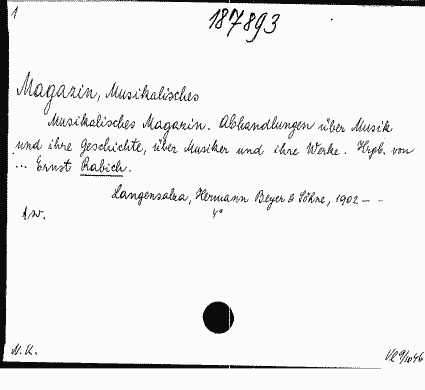 1
187893
Magazin, Musikalisches
Musikalisches Magazin. Abhandlungen über Musik
und ihre Geschichte, über Musiker und ihre Werke. Hrgb. von
... Ernst Rabich.
Langensalza, Hermann Beyer & Söhne, 1902 - -
4°
N.K.